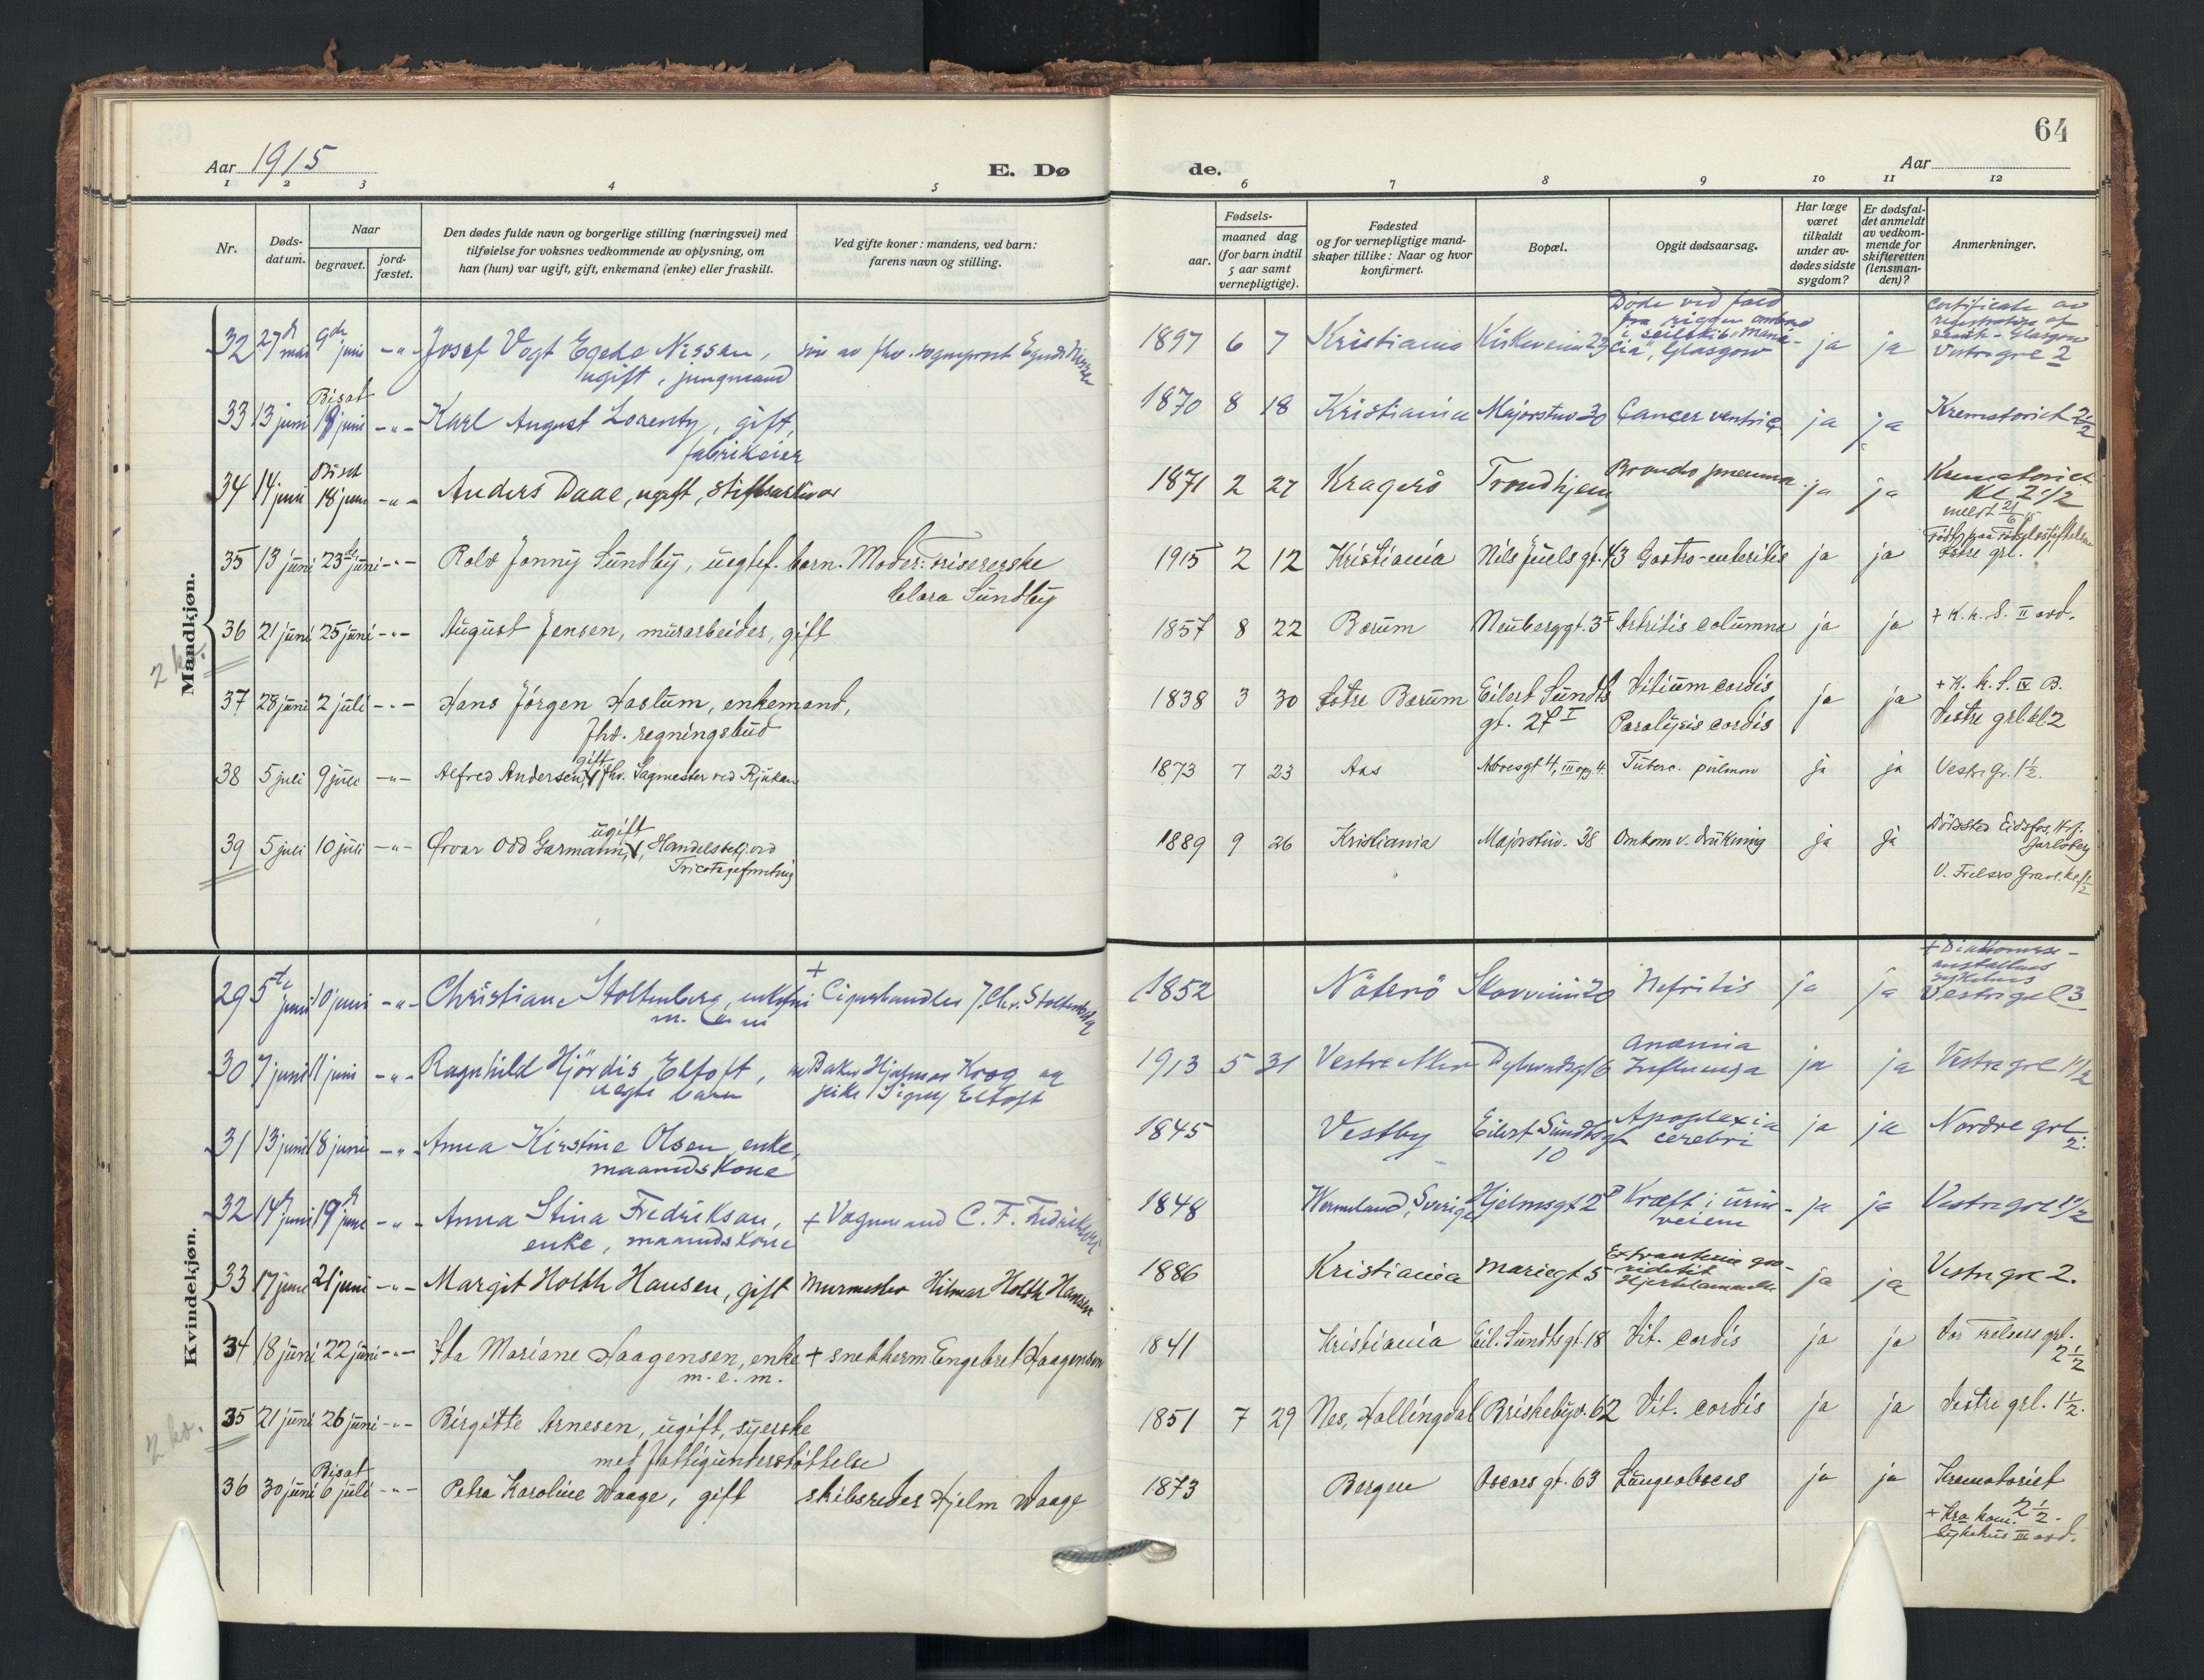 64
Aar 1915
E. Dø
de.
Aar
1 2 3 4 5 6 7 8 9 10 11 12
Nr.
Døds-
datum.
Naar
begravet.
jord-
fæstet.
Den dødes fulde navn og borgerlige stilling (næringsvei) med
tilføielse for voksnes vedkommende av oplysning, om
han (hun) var ugift, gift, enkemand (enke) eller fraskilt.
Ved gifte koner: mandens, ved barn:
farens navn og stilling.
Fødsels-
aar.
maaned dag
(for barn indtil
5 aar samt
vernepligtige).
Fødested
og for vernepligtige mand-
skaper tillike: Naar og hvor
konfirmert.
Bopæl.
Opgit dødsaarsag.
Har læge
været
tilkaldt
under av-
dødes sidste
sygdom?
Er dødsfal-
det anmeldt
av vedkom-
mende for
skifteretten
(lensman-
den)?
Anmerkninger.
Mandkjøn.
32 27de mai 9de juni -"- Josef Vogt Egede Nissen, søn av fhv. sogneprest Egede Nissen 1897 6 7 Kristiania Kirkeveien 23 ja ja
ugift, jungmand
Døde ved fald
fra riggen ombord
i seilskib "Mana-
cia", Glasgow
Certificate av
registration of
death - Glasgow
Vestre grl 2
Bisat
33 13 juni 18 juni -"- Karl August Lorentz, gift, 1870 8 18 Kristiania Majorstuv 30 Cancer ventric. ja ja Krematoriet 2 1/2
fabrikeier
Bisat
34 14 juni 18 juni -"- Anders Daae, ugift, stiftsarkivar 1871 2 27 Kragerö Trondhjem Broncho pneumo. ja ja Krematoriet
Kl 2 1/2
meldt 21/6 15
35 13 juni 23de juni -"- Rolv Jonny Sundby, uegtef. barn. Moder: Friserske 1915 2 12 Kristiania Nils Juels gt. 43 Gastro-enteritis ja ja
Clara Sundby
Födt paa Födselsstiftelsen
Östre grl.
36 21 juni 25 juni -"- August Jensen, murarbeider, gift 1857 8 22 Bærum Neuberggt. 3 I Artritis columna ja ja + K. k. S. II avd.
2 kv.
37 28 juni 2 juli -"- Hans Jörgen Haslum, enkemand, 1838 3 30 Östre Bærum Eilert Sundts Vitium cordis ja ja + K. k. S. IV B.
fhv. regningsbud gt. 27 I Paralysis cordis Vestre grl. kl 2
gift
38 5 juli 9 juli -"- Alfred Andersen, fhv. Sagmester ved Rjukan 1873 7 23 Aas 4, III opg. 4. Tuberc. pulmon ja ja Vestre gr. 1 1/2.
ugift
39 5 juli 10 juli -"- Ørvar Odd Garmann, Handelsbetj. ved 1889 9 26 Kristiania Majorstuv. 38 Omkom v. drukning ja ja
Tricotageforretning
Dödssted Eidsfos, Hof.
Jarlsberg
V. Frelsers Gravl. kl 1 1/2
Kvindekjøn.
29 5te juni 10 juni -"- Christiane Stoltenberg, enkefru + Cigarhandler J. Chr. Stoltenberg 1852 Nöterö Skovveien 20 Nefritis ja ja
+ Diakonisse-
anstaltens
sykehus
Vestre grl 3
30 7 juni 11 juni -"- Ragnhild Hjördis Eltoft, Baker Hjalmar Krog og 1913 5 31 Vestre Aker Dybwadsgt 6 Anæmia ja ja Vestre grl 1 1/2
uegte barn pike Signy Eltoft Influensa
31 13 juni 18 juni -"- Anna Kirstine Olsen, enke, 1845 Vestby Eilert Sundtsgt Apoplexia ja ja Nordre grl
maanedskone 10 cerebri 2.
32 14de juni 19de juni -"- Anna Stina Fredrikson, + Vognmand C. F. Fredrikson 1848 Wermland, Sverige Hjelmsgt 2 Kræft i urin- ja ja Vestre grl 1 1/2
enke, maanedskone veiene
33 17 juni 21 juni -"- Margit Holth Hansen, gift Murmester Hilmar Holth Hansen 1886 Kristiania Mariegt 5 Extrauterin gra- ja ja Vestre grl 2.
viditet
Hjertelammelse
34 18 juni 22 juni -"- Ida Mariane Haagensen, enke + snekkerm Engebret Haagensen 1841 Kristiania Eil. Sundtsgt. 18 Vit. cordis ja ja Vor Frelsers grl.
m. e. m. 2 1/2
35 21 juni 26 juni -"- Birgitte Arnesen, ugift, syerske 1851 7 29 Nes, Hallingdal Briskebyv. 62 Vit. cordis ja ja Vestre grl. 1 1/2.
med fattigunderstöttelse
2 kv.
Bisat
36 30 juni 6 juli -"- Petra Karoline Waage, gift skibsreder Hjelm Waage 1873 Bergen Oscars gt. 63 Lungeabsces ja ja Krematoriet
2 1/2.
+ Kra kom.
sykehus III avd.